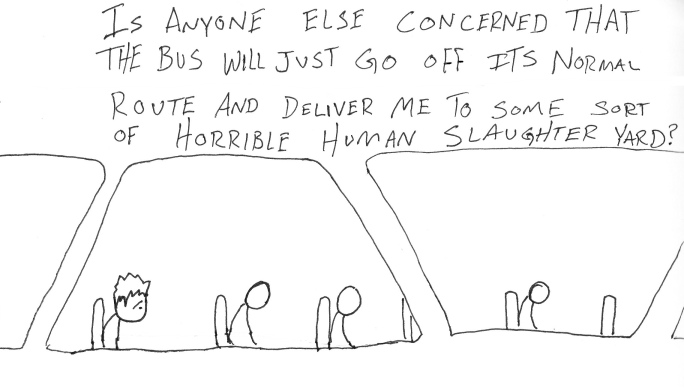 IS ANYONE ELSE CONCERNED THAT
THE BUS WILL JUST GO OFF ITS NORMAL
ROUTE AND DELIVER ME TO SOME SORT
OF HORRIBLE HUMAN SLAUGHTER YARD?